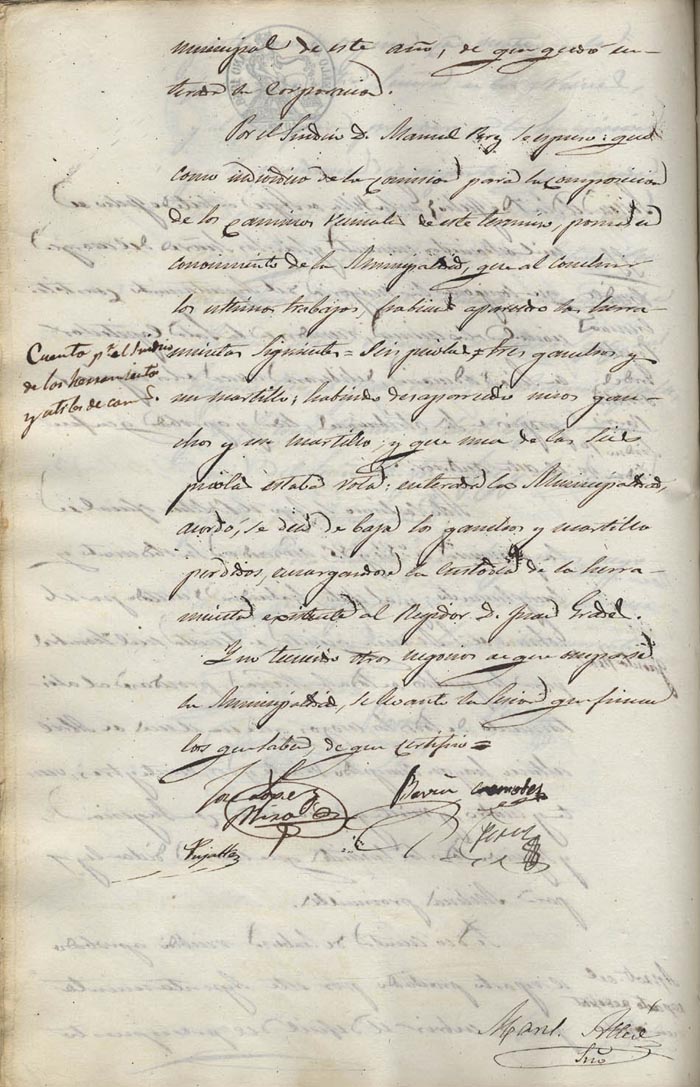 municipal de este año, de que quedó en-
terada la Corporacion.
Por el Sindico D. Manuel Perez se espuso: que
como individuo de la Comision para la composicion
de los Caminos rurales de este termino, ponia en
conocimiento de la Municipalidad, que al concluir
los ultimos trabajos, habian aparecido las herra-
mientas siguientes = Seis piolas = tres ganchos y
un martillo; habiendo desaparecido unos gan-
chos y un martillo; y que una de las seis
piolas estaba rota: enterada la Municipalidad,
acordó, se dén de baja los ganchos y martillo
perdidos, encargandose la custodia de la herra-
mienta existente al Rejidor D. Juan
Y no teniendo otros negocios de que ocuparse
la Municipalidad, se levantó la Sesion que firman
los que saben, de que certifico =
Cuenta pr. el Sindico
de las herramientas
y utiles de cams.
Jose Lopez
Pujalte
Perez
Manl.
Srio